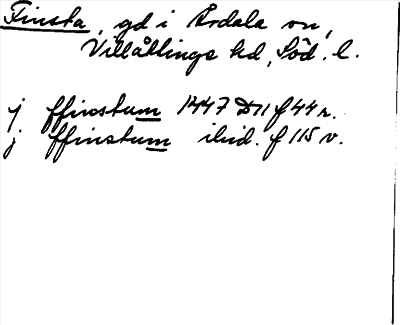 Finsta, gd i Årdala sn,
Villåttings hd, Söd. l.
j ffinstum 1447 D11 f 44 r.
j ffinstum ibid. f 115 v.